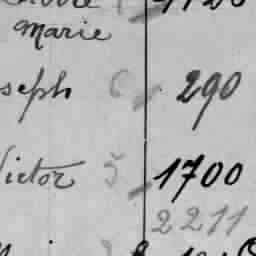 Marie
seph 6 290
Victor 5 1700
2211